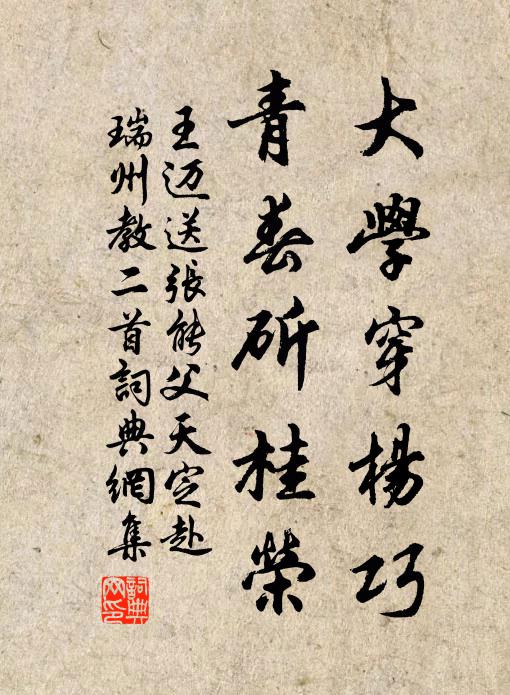 大學穿楊巧
青春斫桂榮
王迈送張能父天定赴
瑞州教二首詞典網集
詞典
网印